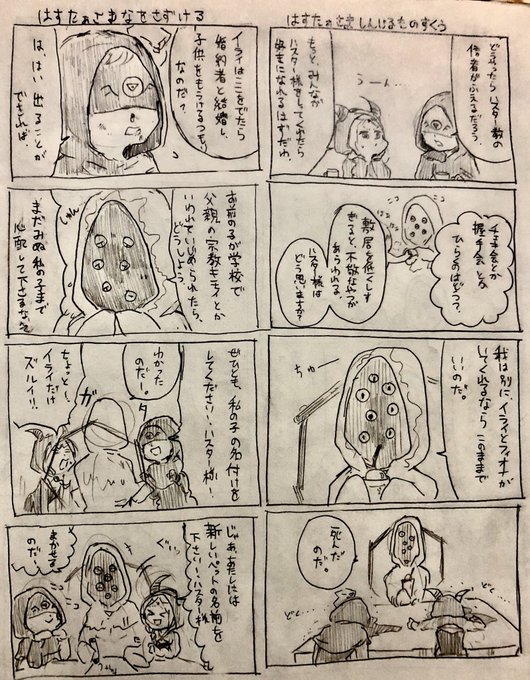 はすたぁさましんじるものすくう
どうやったらハスター教の
信者がふえるだろう。
うーん…
もっと、みんなが
ハスター様をしってくれたら
好きになれるはずだわ。
チェキ会とか
握手会とか
ひらくのはどう?
敷居を低くしす
ぎると、不敬なやつが
あらわれる。
ハスター様は
どう思いますか?
我は別に、イライとフィオナが
いてくれるならこのままで
いいのだ。
ちゅー
死んだ
のだ。
はすたぁさまなをさずける
イライはここをでたら
婚約者と結婚し、
子供をもうけるつもり
なのだ?
は、はい 出ることが
できれば
学校で
父親の宗教キモイとか
いわれていじめられたら、
どうしよう。
しゅん
まだみぬ私の子まで
心配して下さるなんて
ぜひとも、私の子の名付けを
してください、ハスター様!
わかった
のだ。
ちょっとー、
イライだけ
ズルイ!!
じゃあ、わたしには
新しいペットの名前を
下さい、ハスター様
ぐいっ
まかせる
のだ。